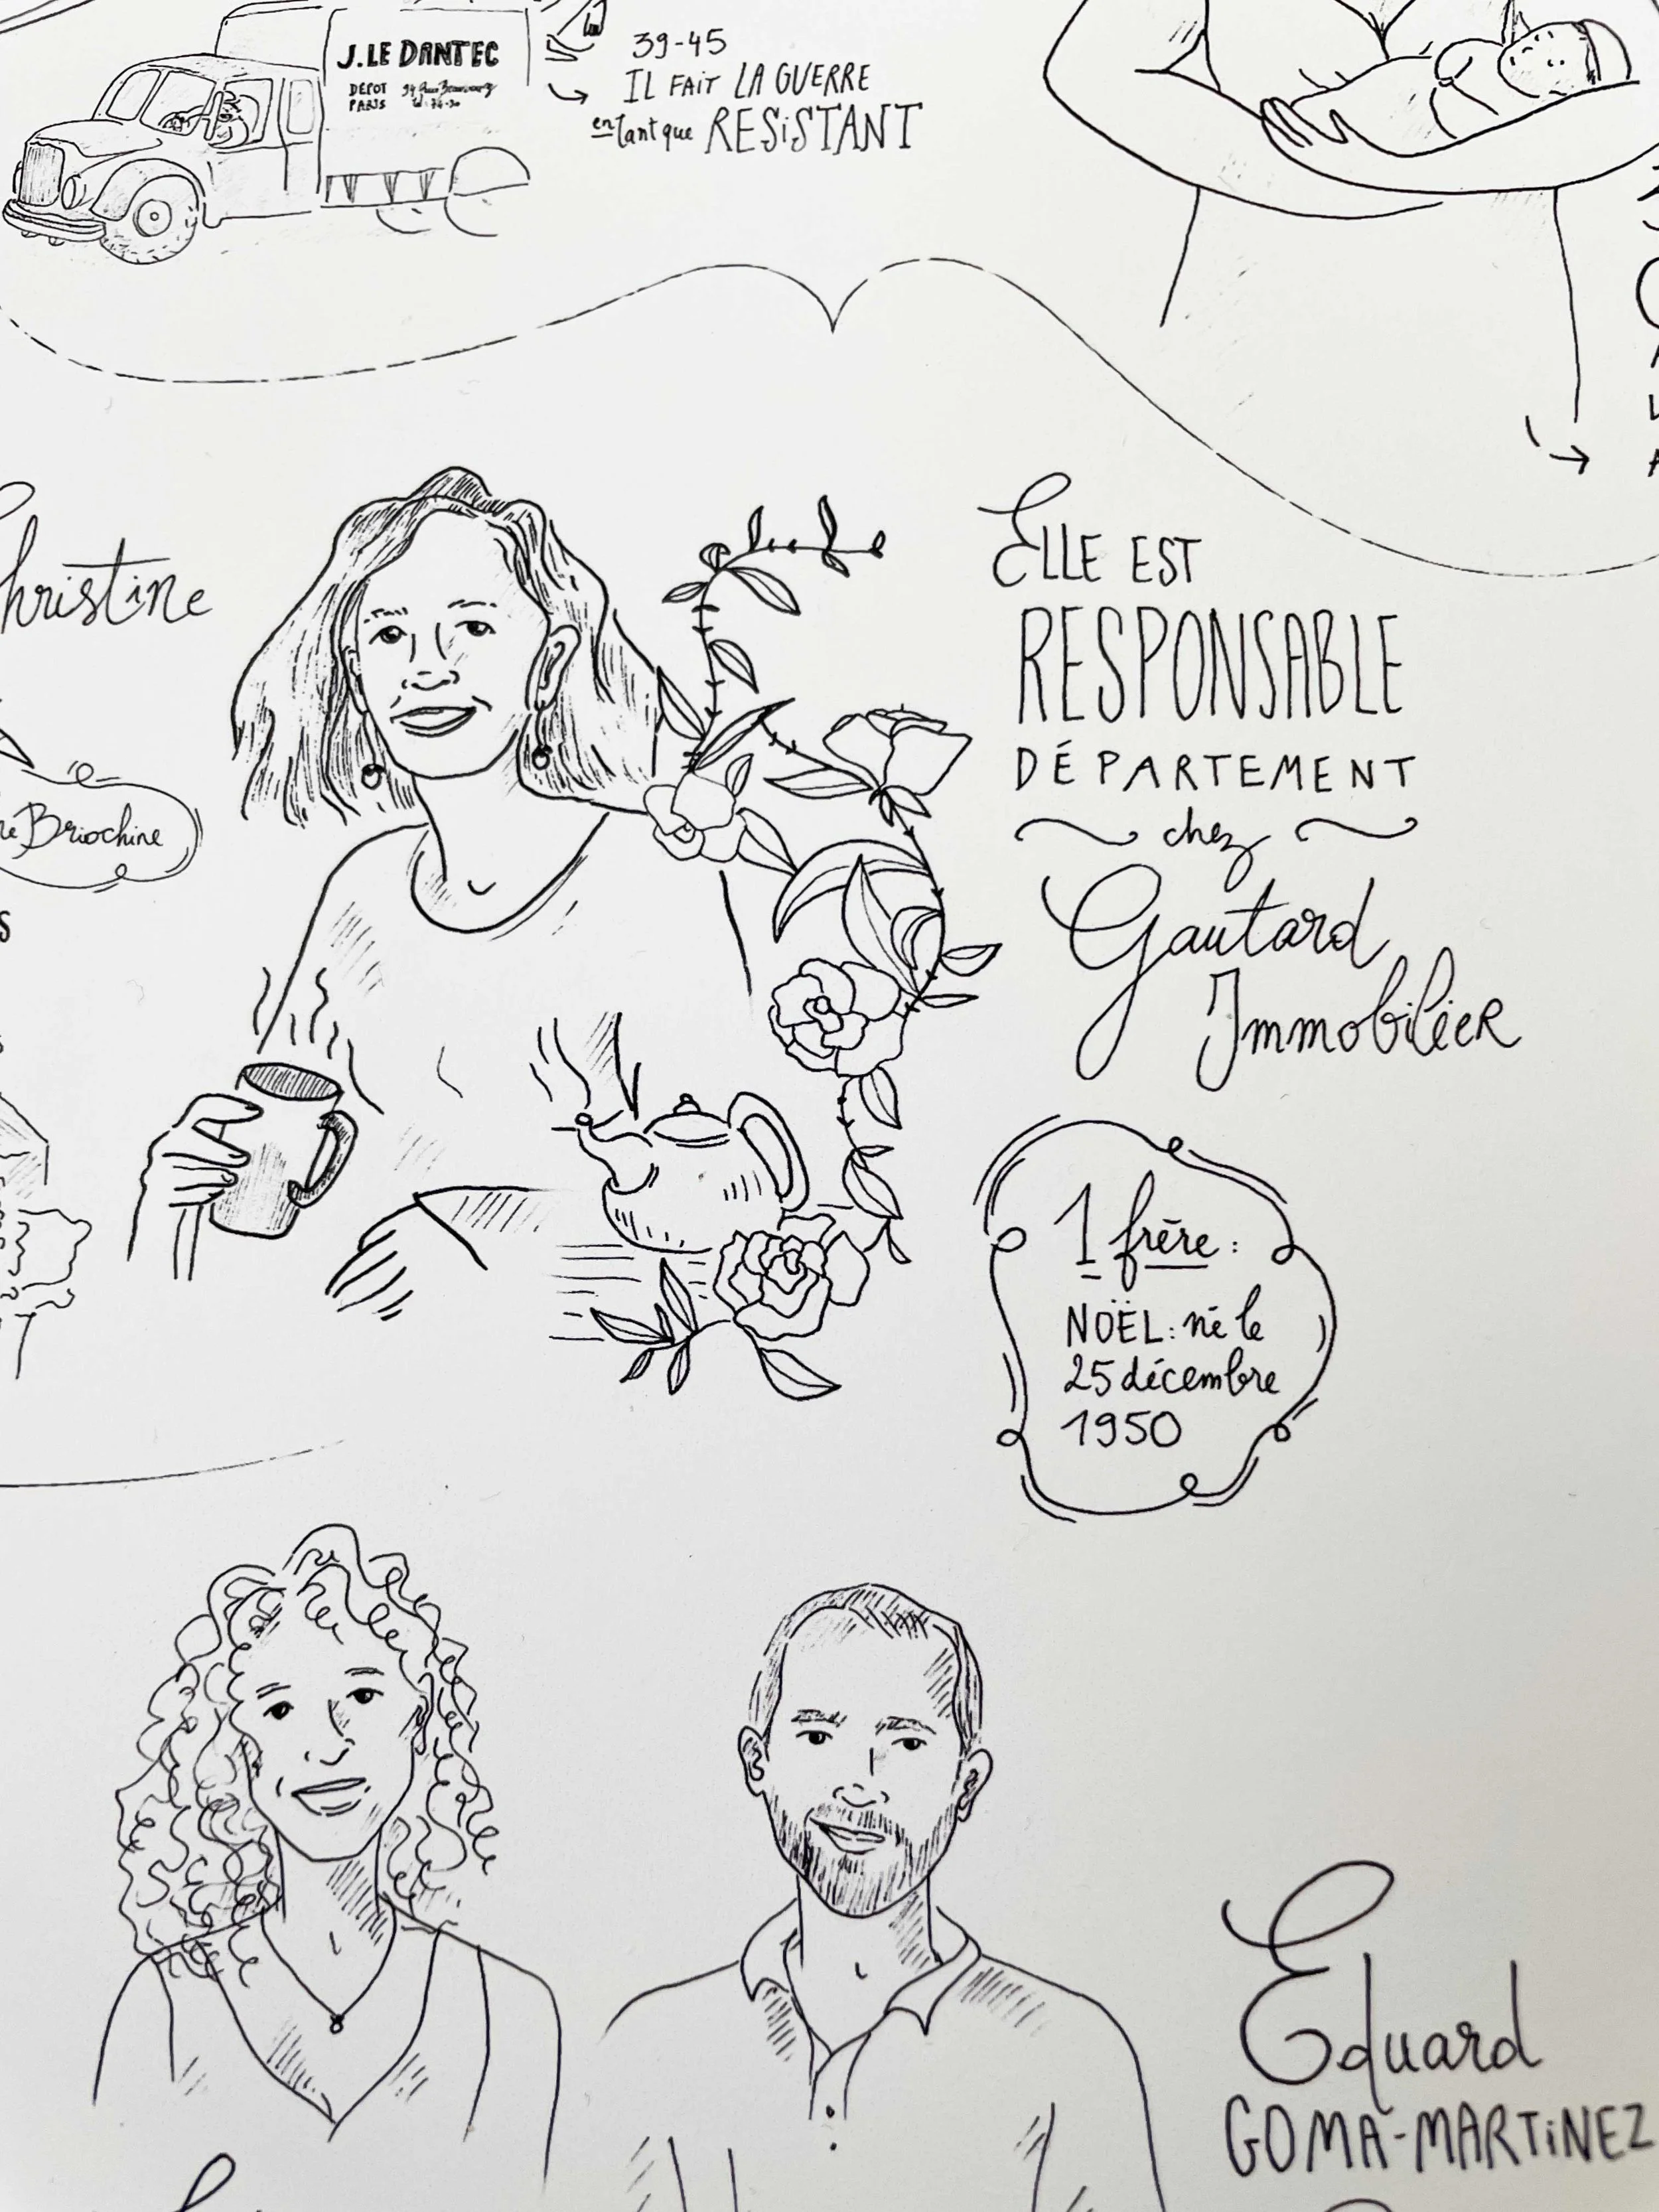 J. LE DANTEC
DEPOT
PARIS
39-45
IL FAIT LA GUERRE
en tant que RESiSTANT
Christine
Briochine
ELLE EST
RESPONSABLE
DÉPARTEMENT
chez
Gautard
Immobilier
1 frère :
NOËL : né le
25 décembre
1950
Eduard
GOMA-MARTiNEZ